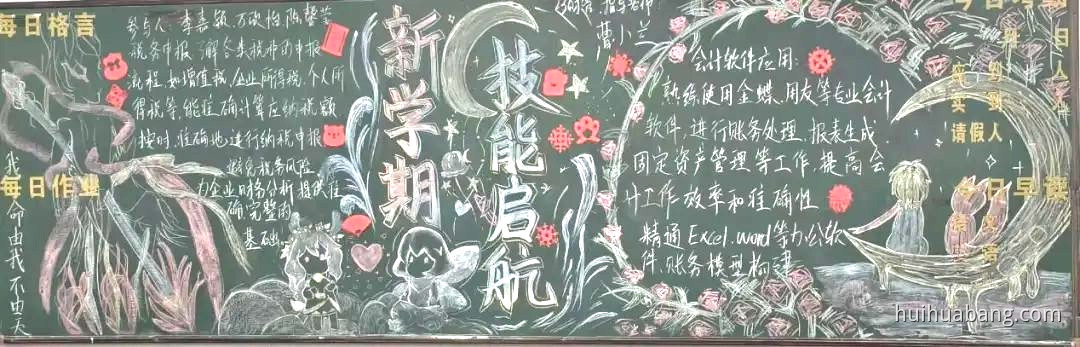 每日格言
参与人:李嘉敏、万欣怡、陈馨莹
税务申报:了解各类税种的申报
流程,如增值税、企业所得税、个人所
得税等,能准确计算应纳税额
按时、准确地进行纳税申报
避免税务风险
为企业财务分析提供准
确、完整的
基础
每日作业
我命由我不由天
新学期
技能启航
指导老师
曹小兰
会计软件应用:
熟练使用金蝶、用友等专业会计
软件,进行账务处理、报表生成、
固定资产管理等工作,提高会
计工作效率和准确性
精通Excel、word等办公软
件,账务模型构建
今日考勤
应到
实到
请假人
今日早读
语
英语
huihuabang.com